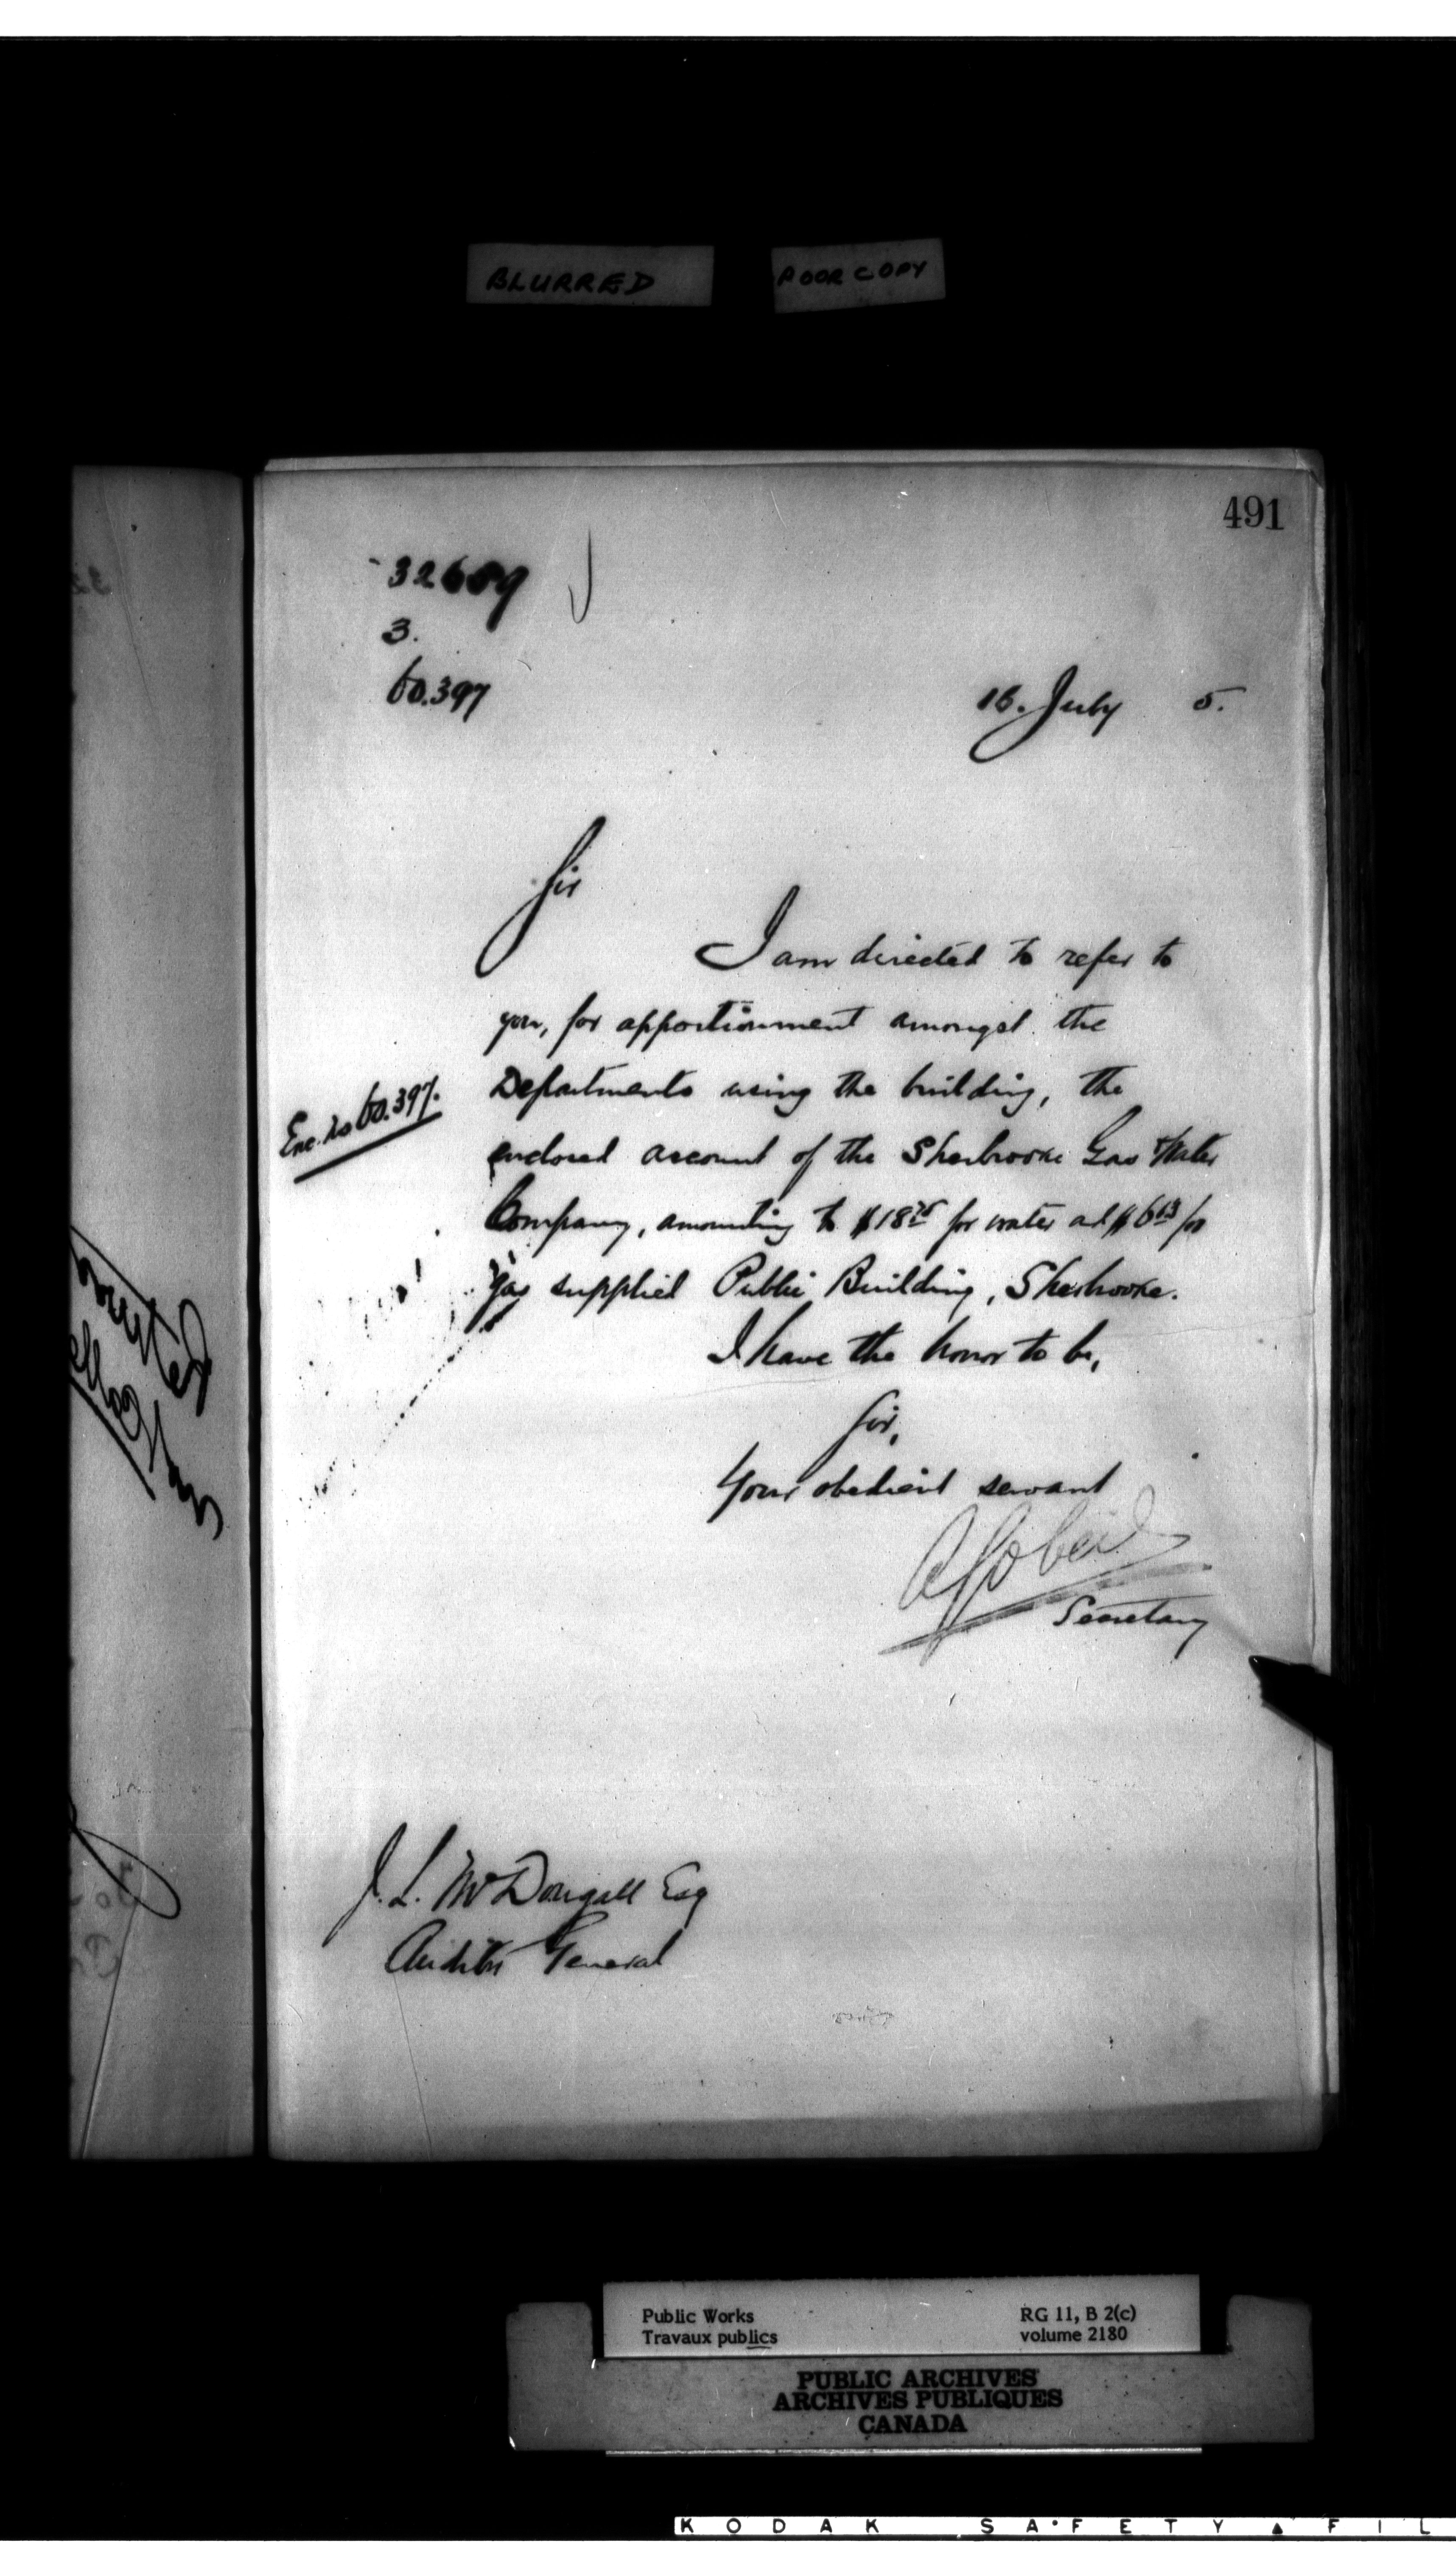 BLURRED
POOR COPY
491
32689
3.
60.397
16. July 5.
Sir
I am directed to refer to
you, for apportionment amongst the
Departments using the building, the
Enc. no 60.397.
enclosed account of the Sherbrooke Gas & Water
Company, amounting to $18 75 for water and $6 63 for
gas supplied Public Building, Sherbrooke.
I have the honor to be,
Sir,
Your obedient servant
A Gobeil
Secretary
J. L. McDougall Esq
Auditor General
Public Works
Travaux publics
RG 11, B 2(c)
volume 2180
PUBLIC ARCHIVES
ARCHIVES PUBLIQUES
CANADA
KODAK SAFETY FIL